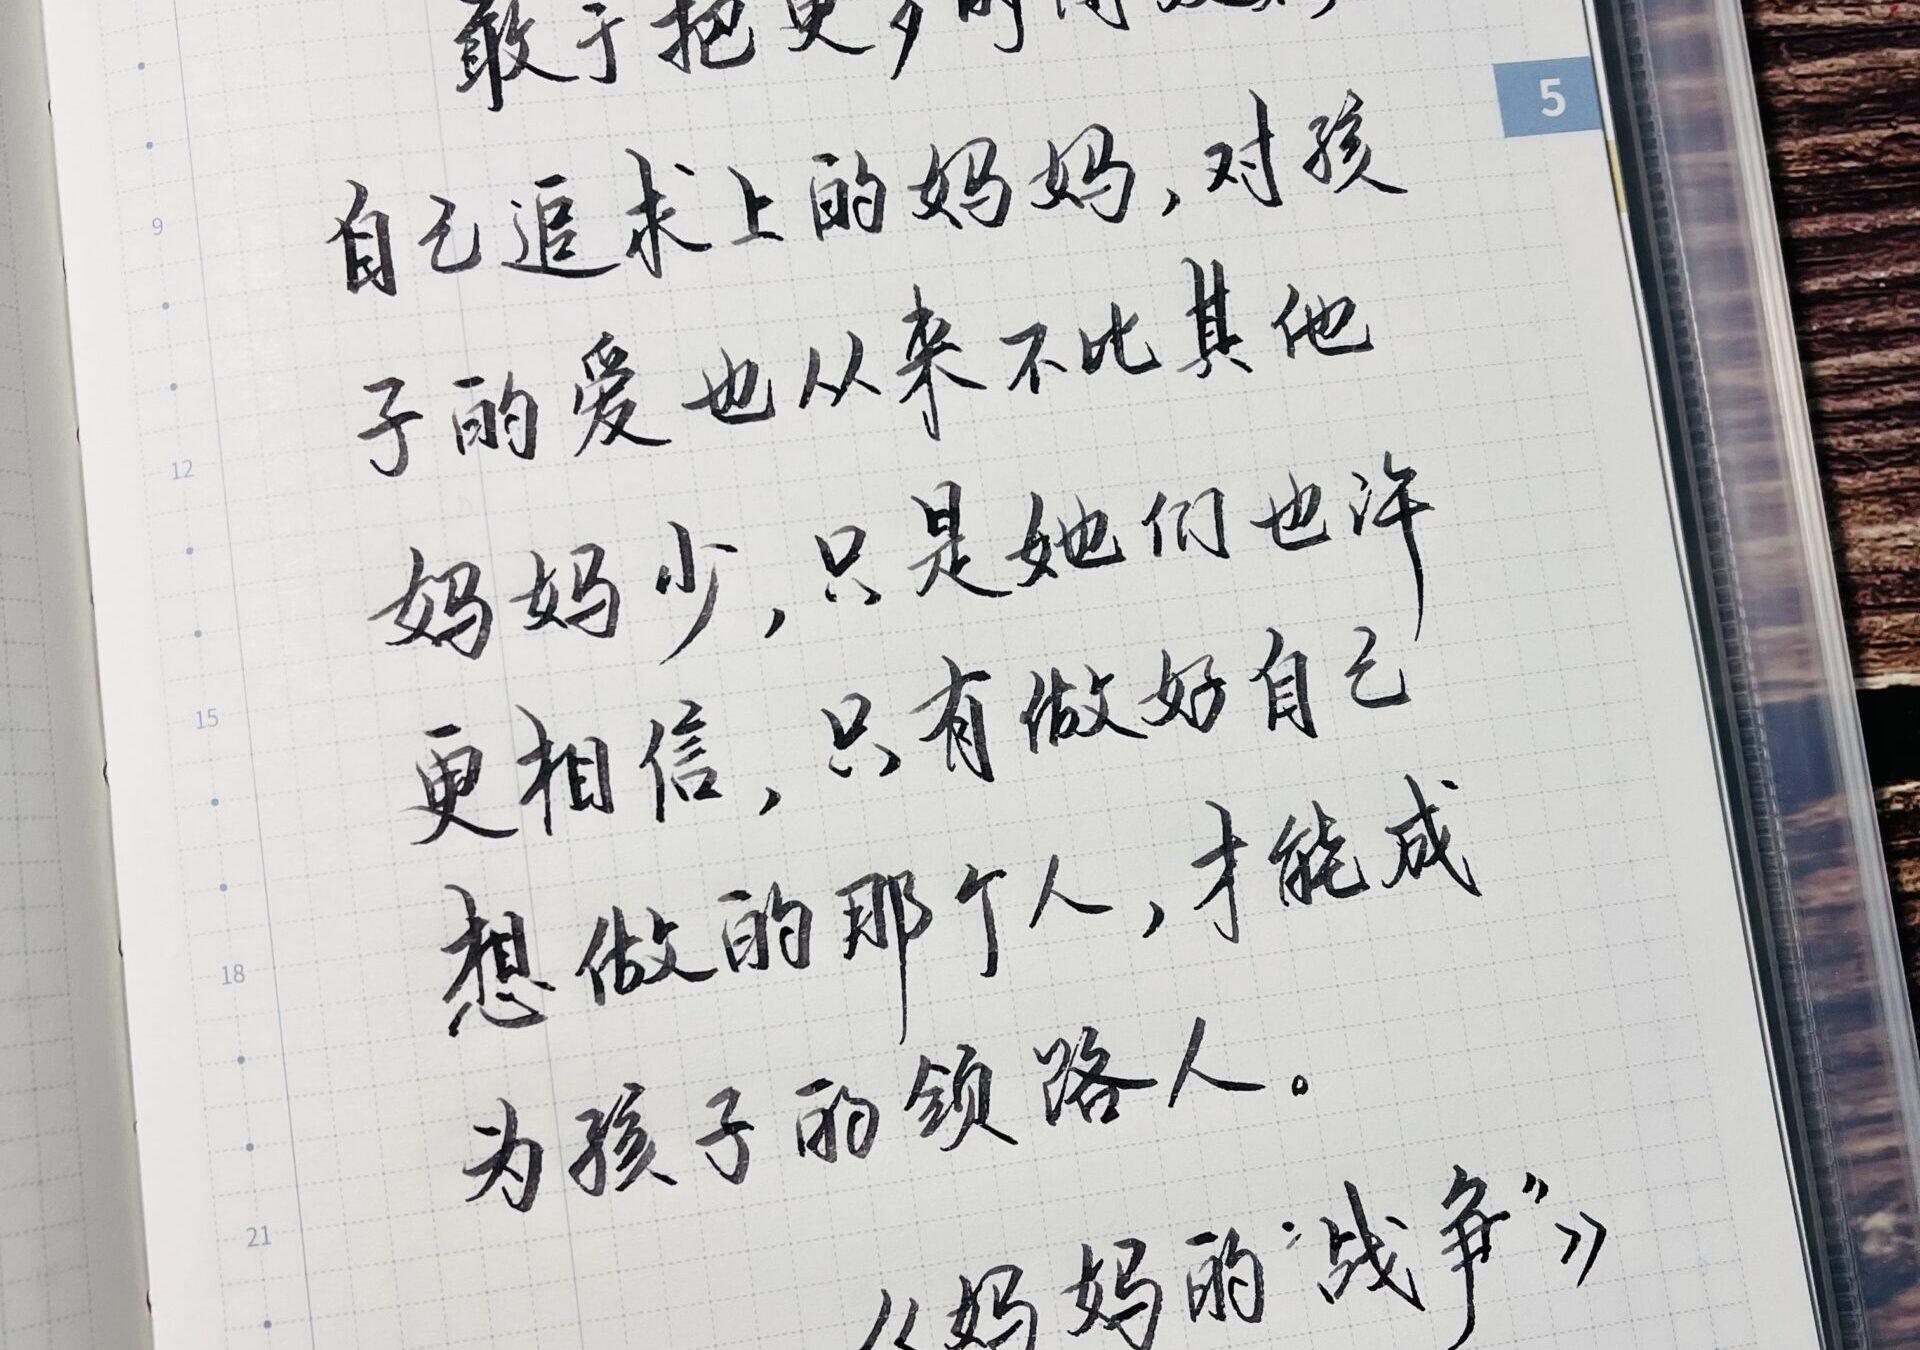 敢于把更多时间
5
自己追求上的妈妈，对孩
9
子的爱也从来不比其他
12
妈妈少，只是她们也许
15
更相信，只有做好自己
想做的那个人，才能成
18
为孩子的领路人。
21
《妈妈的“战争”》